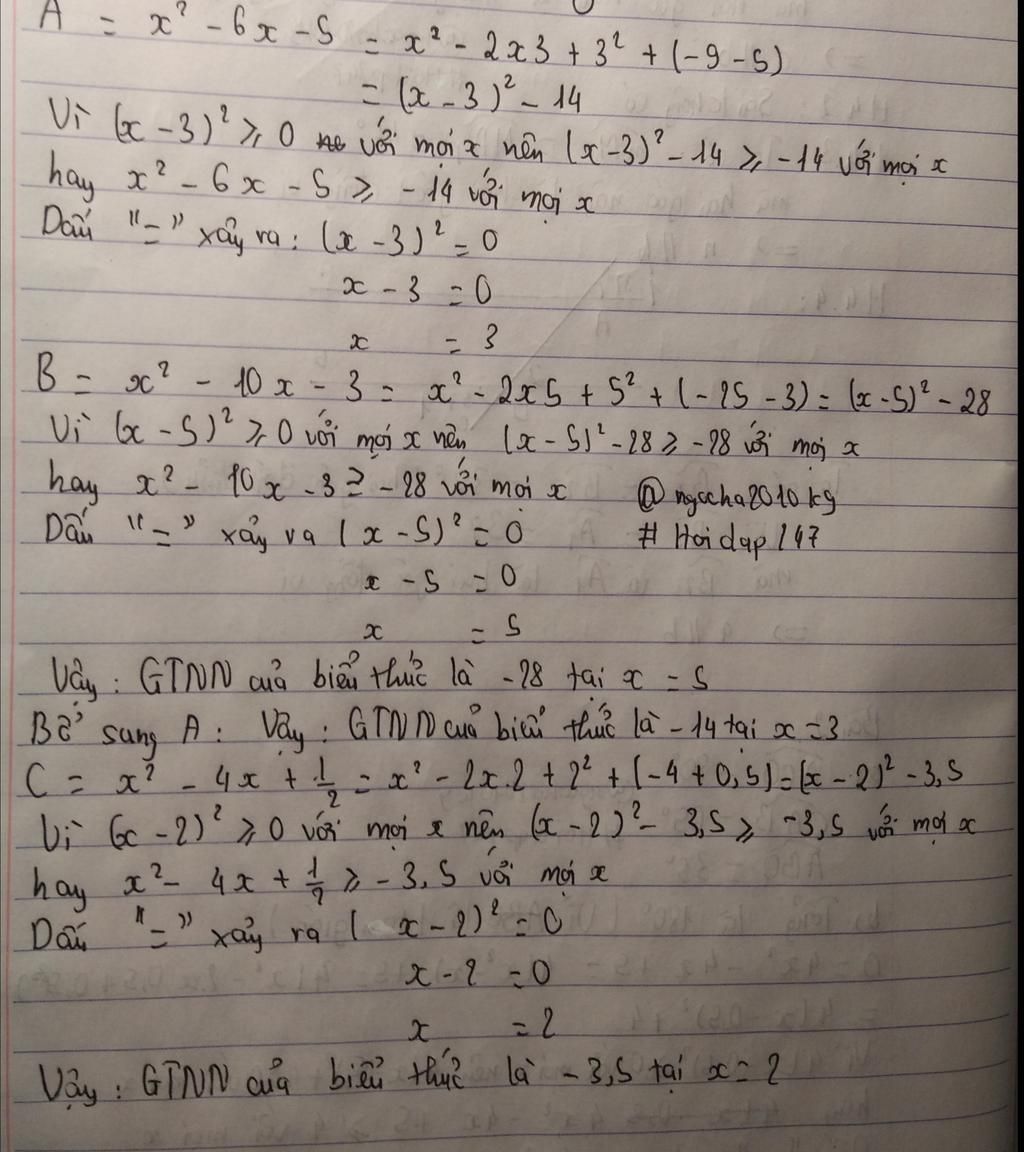 A = x² - 6x - 5 = x² - 2x3 + 3² + (-9 - 5)
= (x - 3)² - 14
Vì (x - 3)² ≥ 0 với mọi x nên (x-3)² - 14 ≥ -14 với mọi x
hay x² - 6x - 5 ≥ -14 với mọi x
Dấu "=" xảy ra: (x - 3)² = 0
x - 3 = 0
x = 3
B = x² - 10x - 3 = x² - 2x5 + 5² + (-25 - 3) = (x-5)² - 28
Vì (x - 5)² ≥ 0 với mọi x nên (x - 5)² - 28 ≥ -28 với mọi x
hay x² - 10x - 3 ≥ -28 với mọi x @ngocha2010kg
Dấu "=" xảy ra (x - 5)² = 0 # Hoidap247
x - 5 = 0
x = 5
Vậy: GTNN của biểu thức là -28 tại x = 5
Bổ sung A: Vậy: GTNN của biểu thức là -14 tại x = 3
C = x² - 4x + 1/2 = x² - 2x.2 + 2² + (-4 + 0,5) = (x - 2)² - 3,5
Vì (x - 2)² ≥ 0 với mọi x nên (x - 2)² - 3,5 ≥ -3,5 với mọi x
hay x² - 4x + 1/2 ≥ -3,5 với mọi x
Dấu "=" xảy ra (x - 2)² = 0
x - 2 = 0
x = 2
Vậy: GTNN của biểu thức là -3,5 tại x = 2